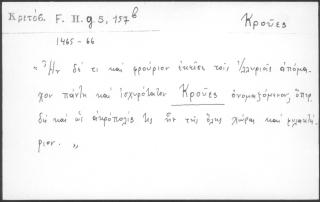 Κριτόβ. F. H. g 5, 157b
Κροῦες
1465-66
« Ἦν δέ τι καὶ φρούριον ἐκεῖσε τοῖς Ἰλλυριοῖς ἀπόμα-
χον πάντῃ καὶ ἰσχυρότατον Κροῦες ὀνομαζόμενον, ὅπερ
δὴ καὶ ὡς ἀκρόπολίς τις ἦν τῆς ὅλης χώρας καὶ φυλακτή-
ριον. »